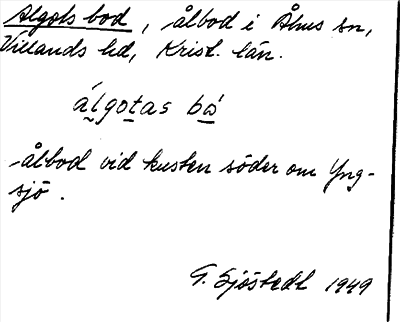 Algots bod, ålbod i Åhus sn,
Villands hd, Krist. län.
álgotas bó
ålbod vid kusten söder om Yng-
sjö.
G. Sjöstedt 1949